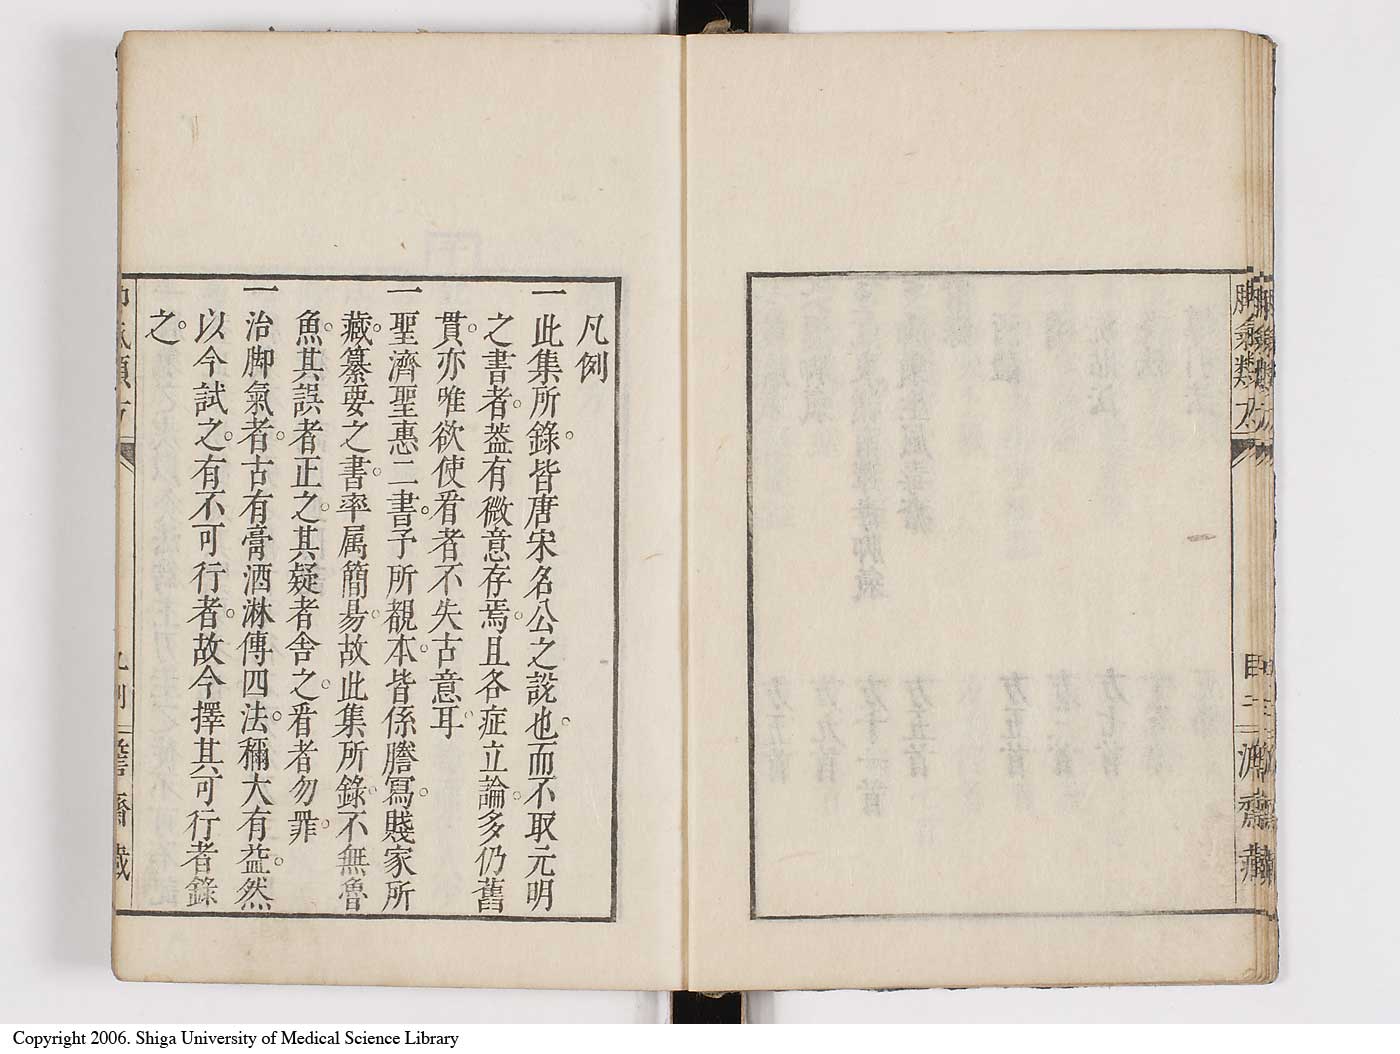 脚氣類方
目
二
濟齋藏
凡例
一此集所錄。皆唐宋名公之說也。而不取元明
之書者。葢有微意存焉。且各症立論。多仍舊
貫。亦唯欲使看者不失古意耳
一聖濟聖惠二書。予所覩本。皆係謄寫。賤家所
藏。纂要之書。率属簡易。故此集所錄。不無魯
魚。其誤者正之。其疑者舍之。看者勿罪。
一治脚氣者。古有膏酒淋傳四法。稱大有益。然
以今試之。有不可行者。故今擇其可行者錄
之。
Copyright 2006. Shiga University of Medical Science Library